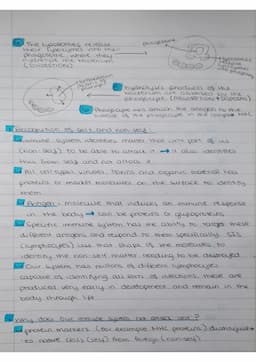 The lysosomes release
their lysozymes into the
phagosome where they
hydrolyse the bacterium
(DIGESTION)
phagosome
Hydrolysis products of the
bacterium are absorbed by the
phagocyte.
Phagocyte will attach the antigen to the
surface of the phagocyte in the
Recognition of self and non-self:
Immune system identifies matter that isn't part of us
(non-self) to be able to attack it → it also identifies
that from self and not attack it
All cell types, viruses, toxins and organic material has
proteins or marker molecules on the surface to identify
them
Antigen: molecule that induces an immune response
in the body → can be proteins or glycoproteins
Specific immune system has the ability to target these
different antigens and respond to them specifically. SIS
(lymphocytes) use the shape of the molecules to
identify the non-self matter needing to be destroyed
Our system has millions of different lymphocytes
capable of identifying all sorts of infections. These are
produced very early in development and remain in the
body through life
Why does our immune system not attack us?
protein markers (for example MHC proteins) distinguishes
es native cells (self) from foreign (non-self)